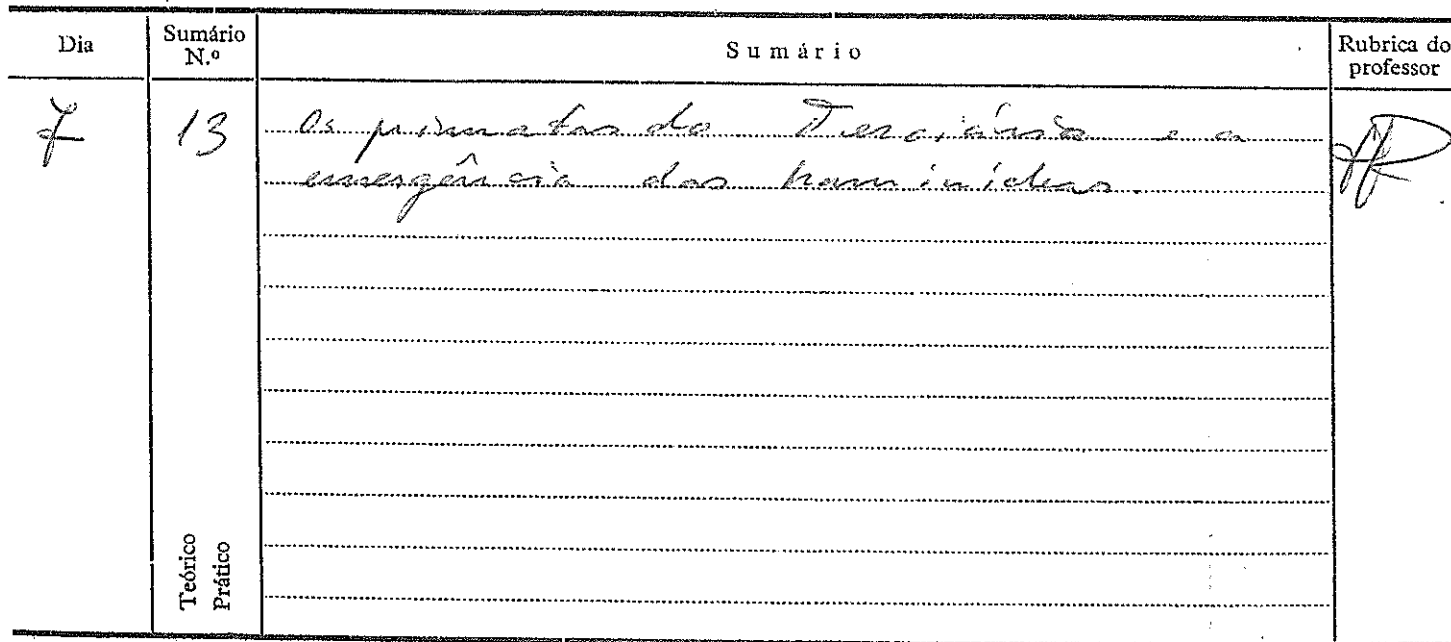 Dia
Sumário
N.º
Sumário
Rubrica do
professor
7
13
Os primatas do Terciário e a
emergência dos hominídeos.
Teórico
Prático